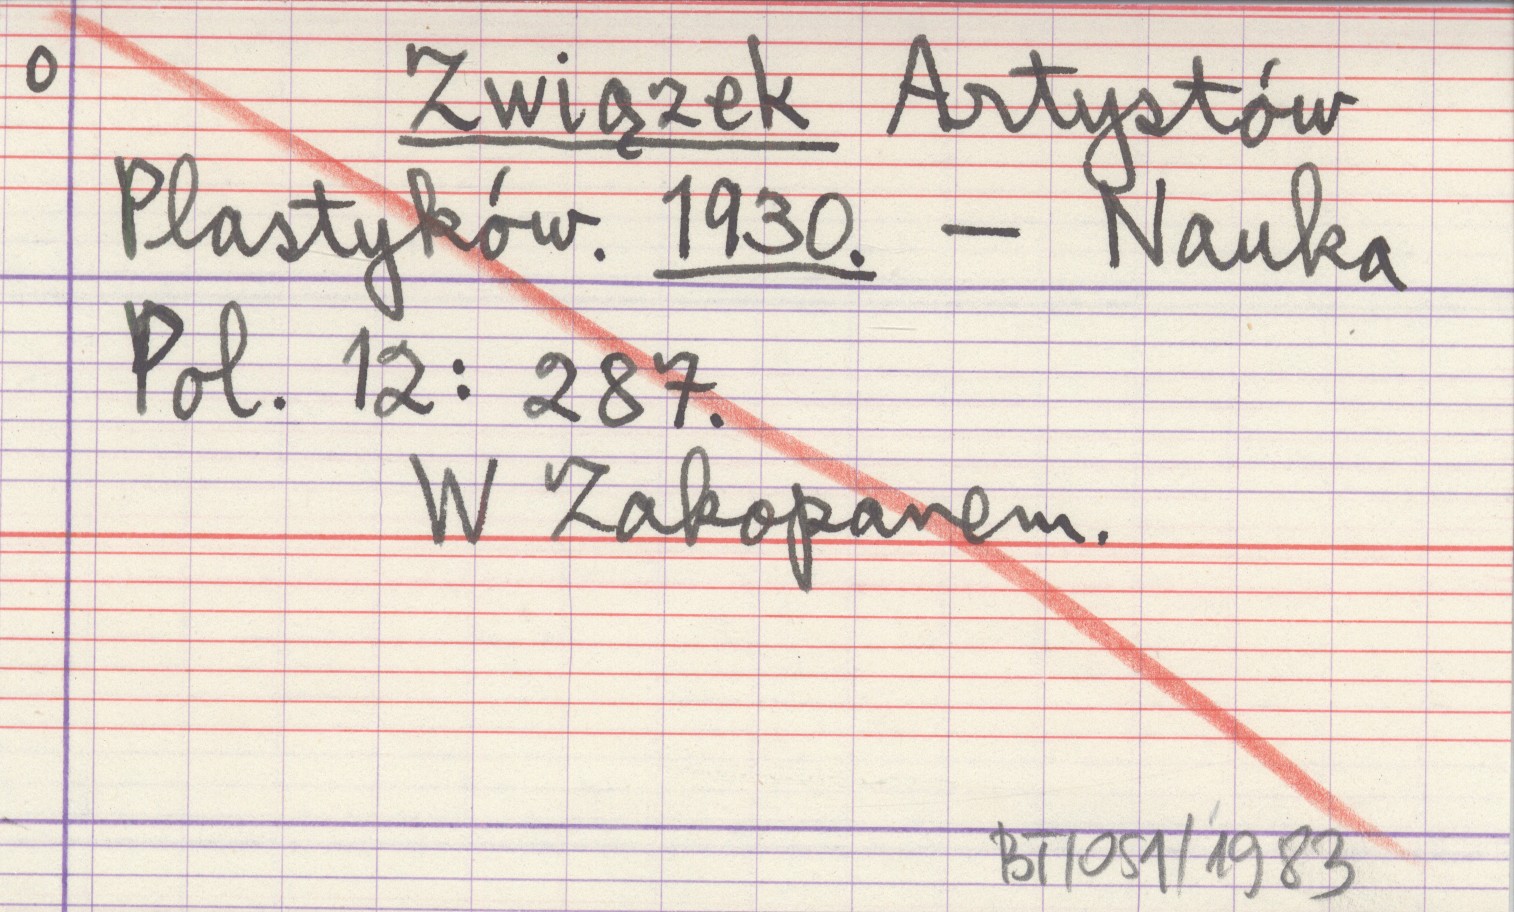 o
Związek Artystów
Plastyków. 1930. — Nauka
Pol. 12: 287.
W Zakopanem.
BT/051/1983